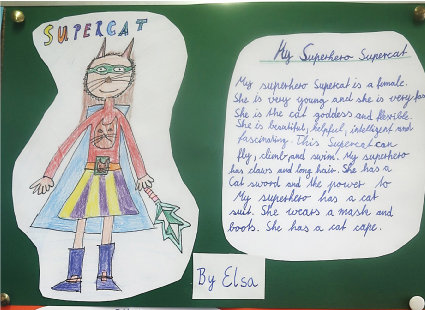 SUPERCAT
My Superhero Supercat
My superhero Supercat is a female.
She is very young and she is very
She is the cat goddess and flexible.
She is beautiful, helpful, intelligent and
fascinating. This Supercat can
fly, climb and swim. My superhero
has claws and long hair. She has a
Cat sword and the power to
My superhero has a cat
suit. She wears a mask and
boots. She has a cat cape.
By Elsa